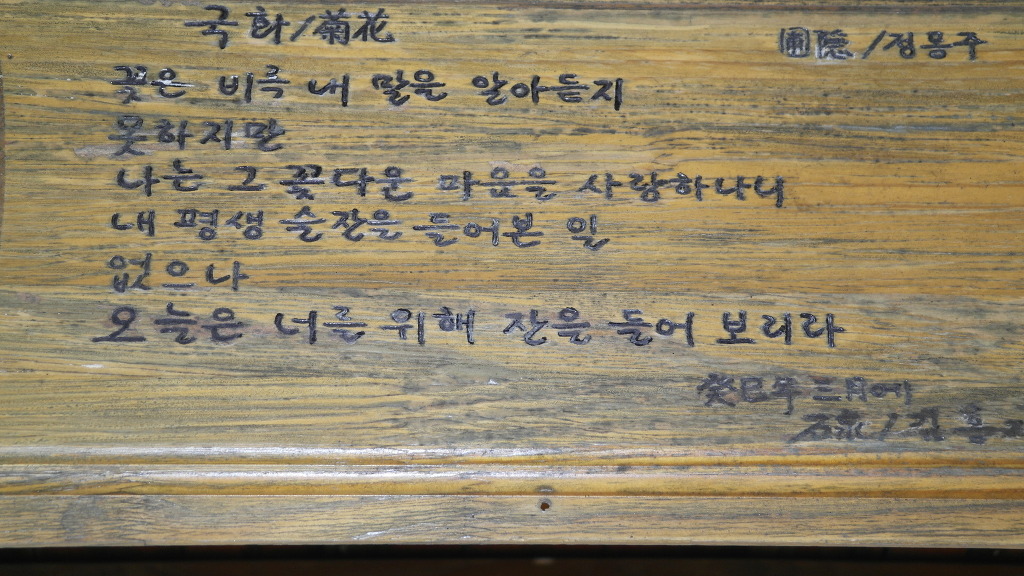 국화/菊花
圃隱/정몽주
꽃은 비록 내 말을 알아듣지
못하지만
나는 그 꽃다운 마음을 사랑하나니
내 평생 술잔을 들어본 일
없으나
오늘은 너를 위해 잔을 들어 보리라
癸巳年 三月에
김홍